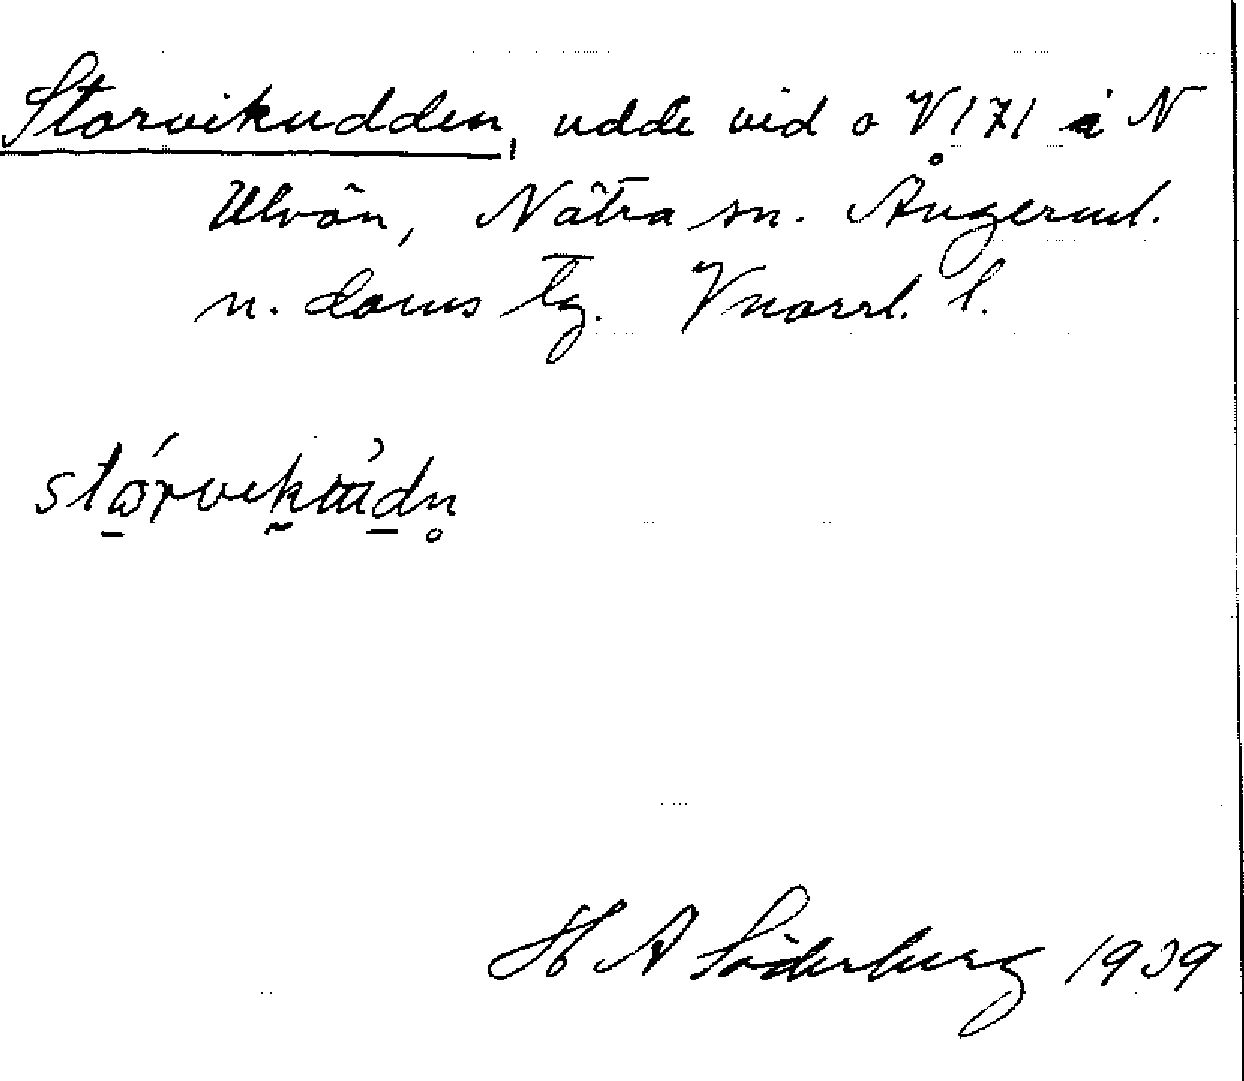 Storvikudden, udde vid o V 171 å N
Ulvön, Nätra sn. Ångerml.
n. doms tg. Vnorrl. l.
H A Söderberg 1939